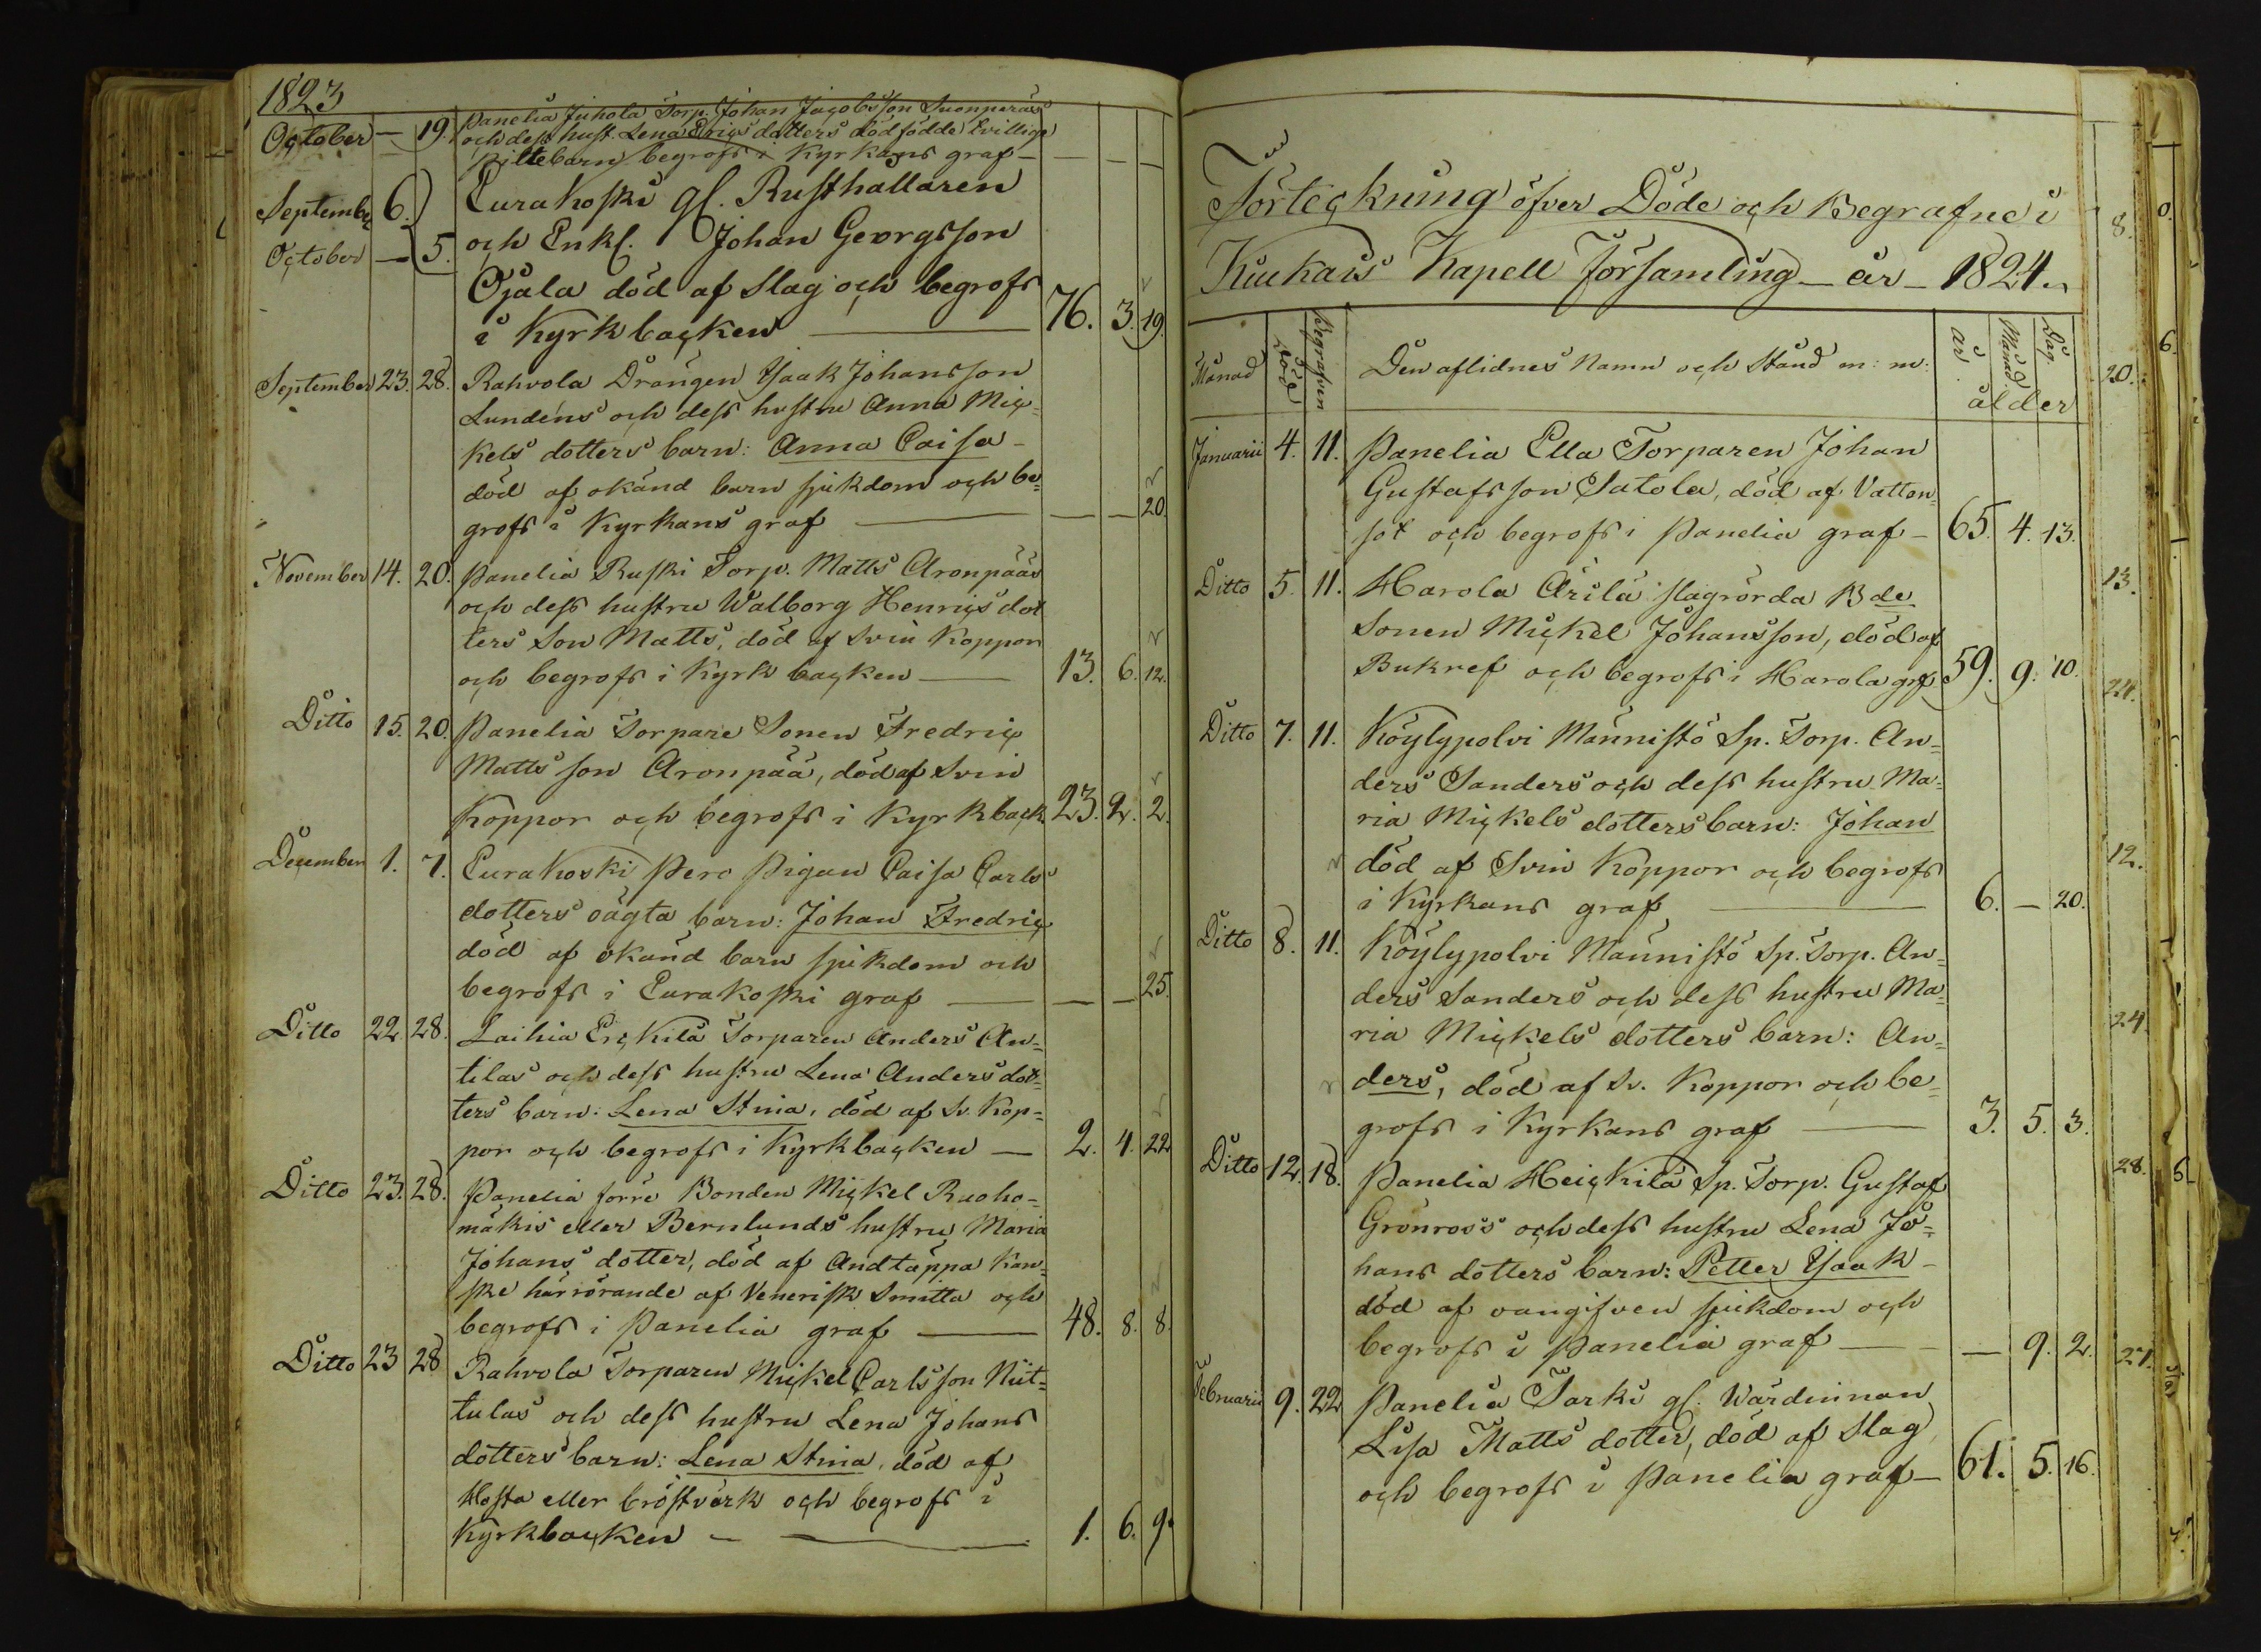 1823
October — 19. Panelia Juhola Torp. Johan Jacobsson Suonperäs
och dess hust. Lena Erics dotters dödfödde tvillige
Piltebarn begrofs i Kyrkans graf — — — —
September 6. Eurakoski gl. Rusthållaren
October — 5. och Enkl. Johan Georgsson
Ojala död af Slag och begrofs
i Kyrkbacken — 76. 3. 19.
September 23. 28. Rahvola Drängen Isaak Johansson
Lundens och dess hustru Anna Mic=
kels dotters barn: Anna Caisa –
död af okänd barn sjukdom och be=
grofs i Kyrkans graf — — — 20.
November 14. 20. Panelia Ruski Torp. Matts Aronpääs
och dess hustru Walborg Henrics dot
ters Son Matts, död af Svin Koppor
och begrofs i Kyrk backen — 13. 6. 12.
Ditto 15. 20. Panelia Torpare Sonen Fredric
Matts son Aronpää, död af Svin
Koppor och begrofs i Kyrkback. 23. 2. 2.
December 1. 7. Eurakoski Pero Pigan Caisa Carls
dotters oägta barn: Johan Fredric
död af okänd barn sjukdom och
begrofs i Eurakoski graf — — — 25.
Ditto 22. 28. Laihia Erckilä Torparen Anders An=
tilas och dess hustru Lena Anders dot=
ters barn: Lena Stina, död af Sv. Kop=
por och begrofs i Kyrkbacken — 2. 4. 22
Ditto 23. 28. Panelia förre Bonden Mickel Ruoho=
mäkis eller Bernlunds hustru Maria
Johans dotter, död af Andtäppa kan=
ske härrörande af Venerisk Smitta och
begrofs i Panelia graf — 48. 8. 8.
Ditto 23 28 Rahvola Torparen Mickel Carlsson Niit=
tulas och dess hustru Lena Johans
dotters barn: Lena Stina, död af
Hosta eller bröstvärk och begrofs i
Kyrkbacken — — 1. 6. 9.
Förteckning öfver Döde och Begrafne i
Kiukais Kapell Församling – år – 1824.
Månad Död Begrafven Den aflidnes Namn och Stånd m: m: år. Månad. Dag.
ålder
Januarii 4. 11. Panelia Ella Torparen Johan
Gustafsson Satola, död af Vatten=
sot och begrofs i Panelia graf – 65. 4. 13.
Ditto 5. 11. Harola Ärilä slagrörda Bde
Sonen Mickel Johansson, död af
Bukref och begrofs i Harola grf 59. 9. 10.
Ditto 7. 11. Köylypolvi Männistö Sp. Torp. An=
ders Sanders och dess hustru Ma=
ria Mickels dotters barn: Johan
död af Svin Koppor och begrofs
i Kyrkans graf — 6. — 20.
Ditto 8. 11. Köylypolvi Männistö Sp. Torp. An=
ders Sanders och dess hustru Ma=
ria Mickels dotters barn: An=
ders, död af Sv. Koppor och be=
grofs i Kyrkans graf — 3. 5. 3.
Ditto 12. 18. Panelia Heickilä Sp. Torp. Gustaf
Grönroos och dess hustru Lena Jo=
hans dotters barn: Petter Isaak –
död af oangifven sjukdom och
begrofs i Panelia graf — — 9. 2.
Februarii 9. 22 Panelia Sarki gl. Wärdinnan
Lisa Matts dotter, död af Slag
och begrofs i Panelia graf – 61. 5. 16.
8.
20.
13.
24.
12.
24.
28.
27.